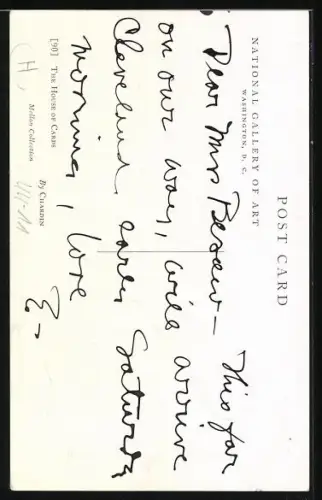 POST CARD
NATIONAL GALLERY OF ART
WASHINGTON, D. C.
Dear Mrs — This far
on our way, will arrive
Cleveland early Saturday
morning, Love
[90] THE HOUSE OF CARDS By CHARDIN
Mellon Collection
(H)